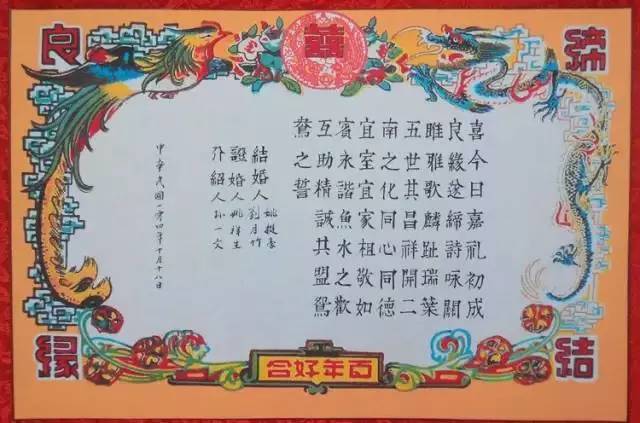 囍
締
結
良
緣
喜今日嘉礼初成
良緣遂締詩咏關
雎雅歌麟趾瑞葉
五世其昌祥開二
南之化同心同德
宜室宜家祖敬如
賓永諧魚水之歡
互助精誠共盟鴛
鴦之誓
結婚人 姚挺
劉月竹
證婚人 姚祥生
介紹人 孙一文
中華民國一零四年十月十八日
百年好合